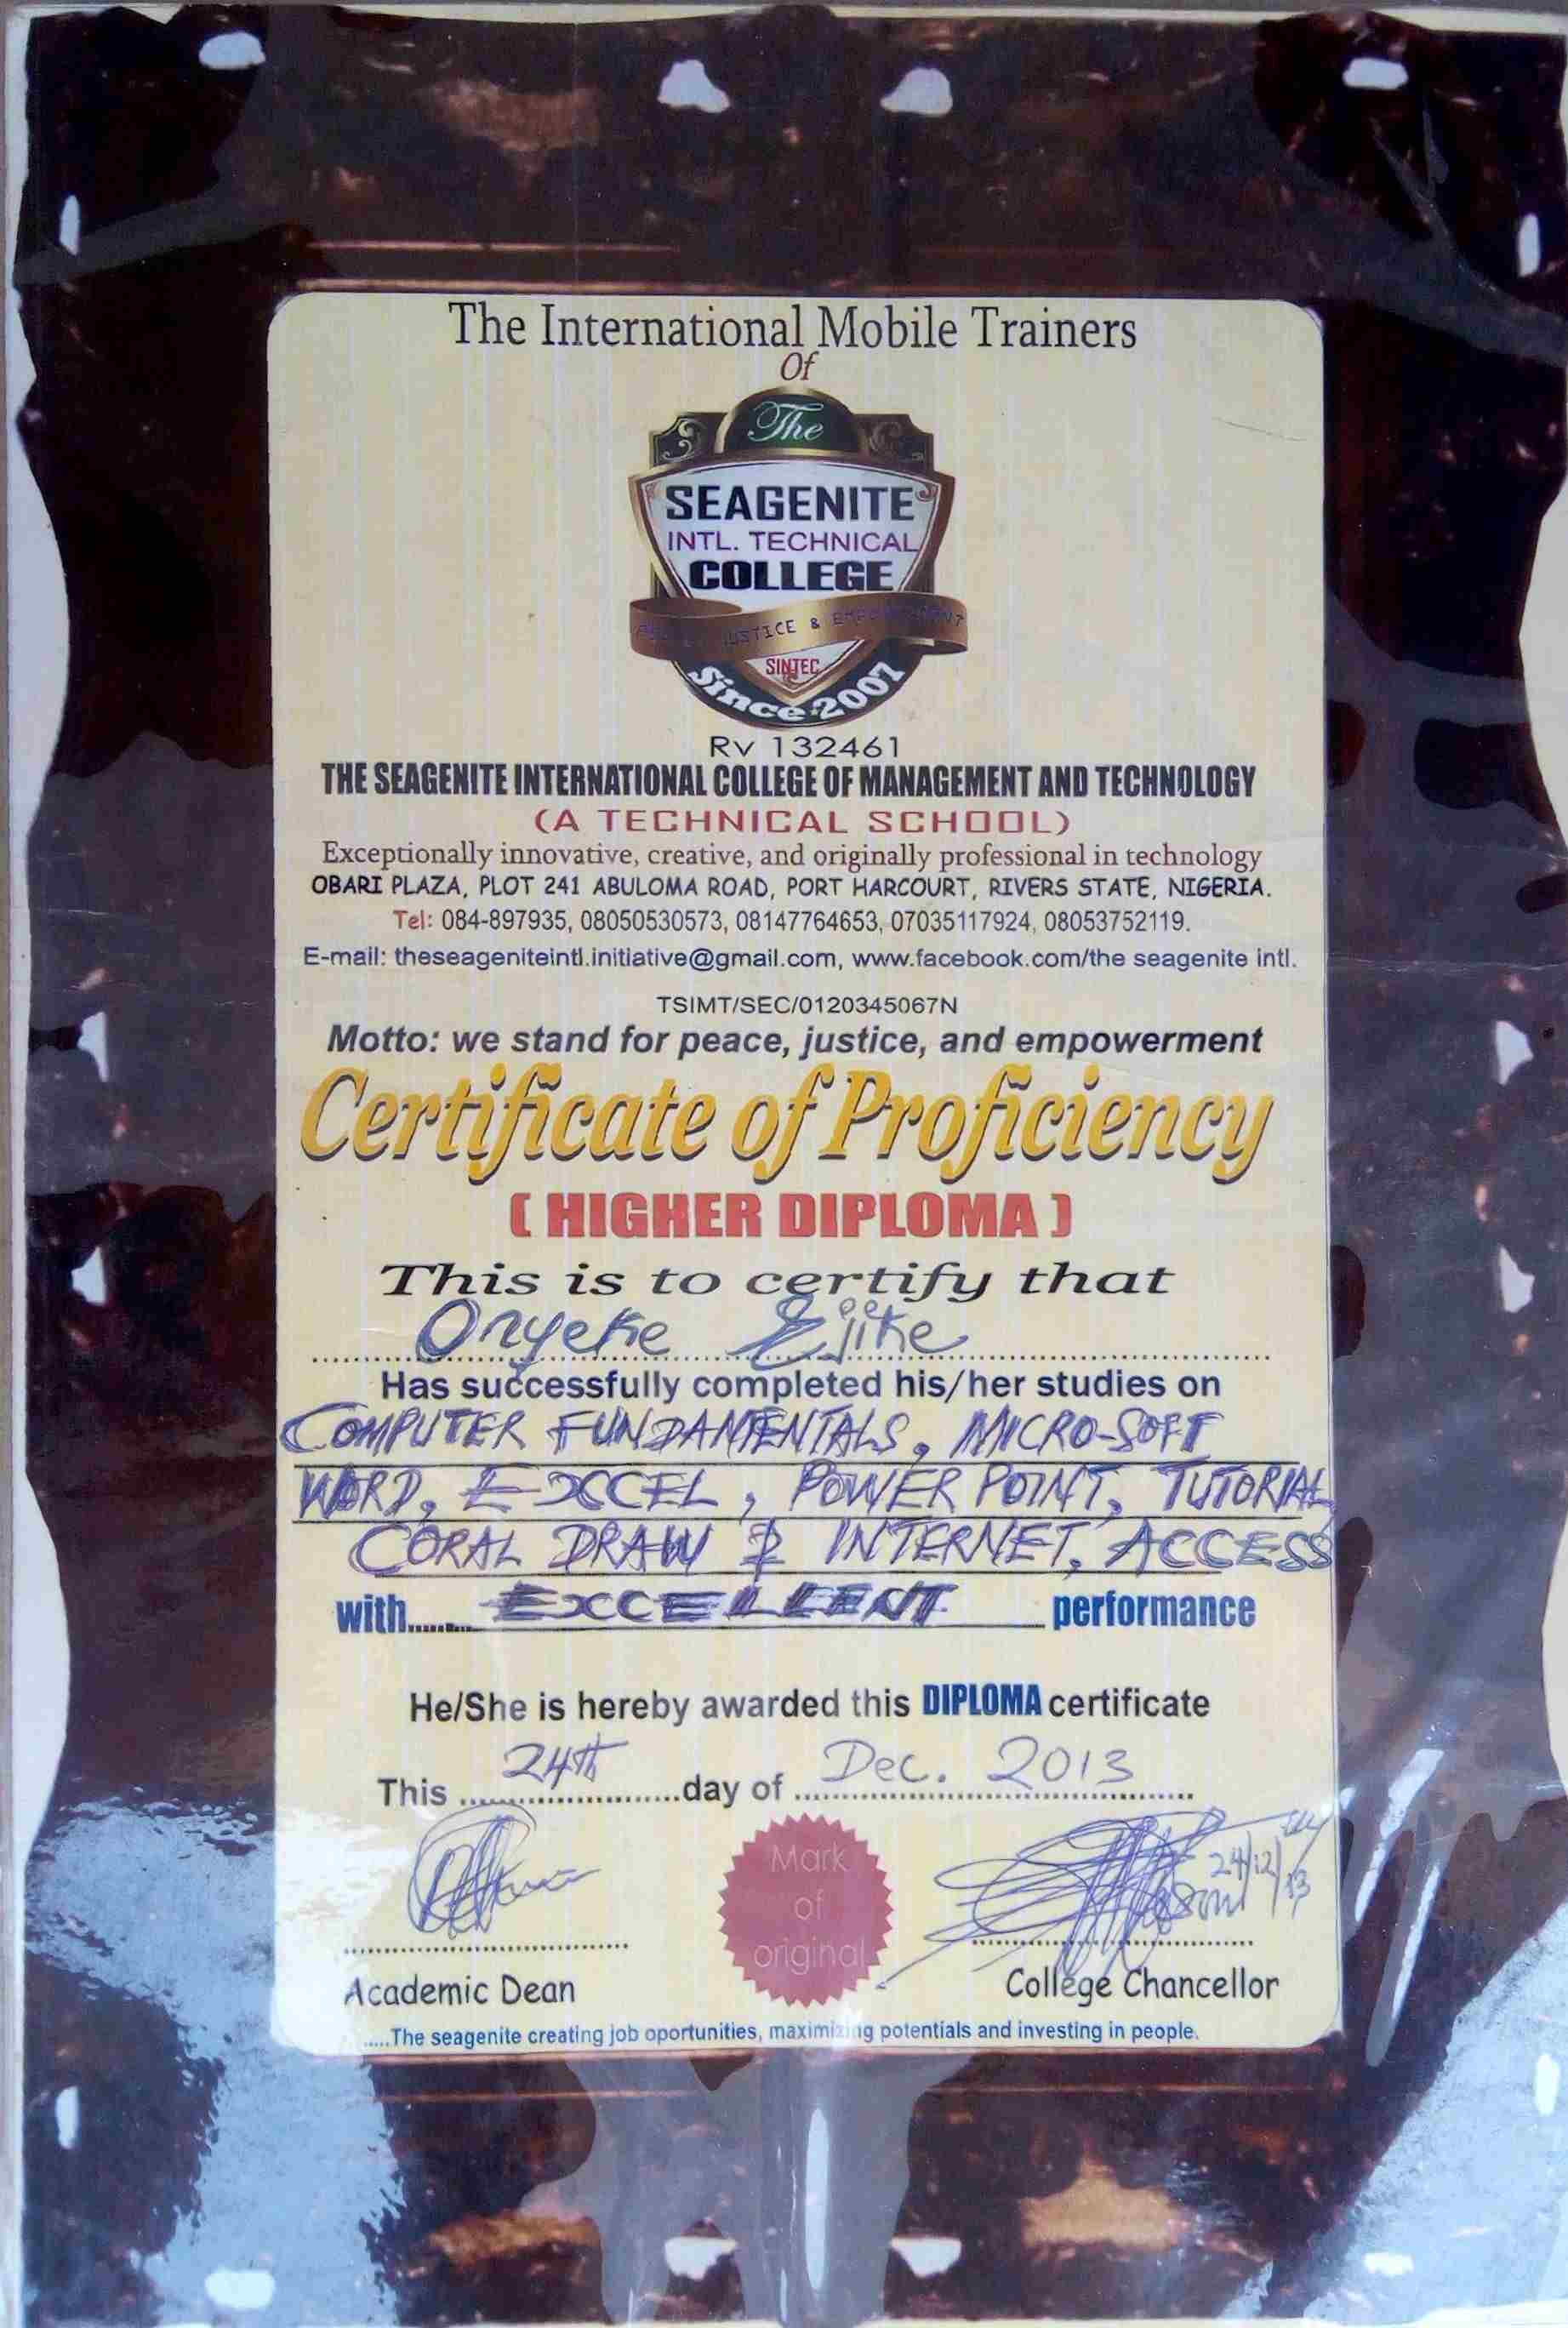 The International Mobile Trainers
Of
The
SEAGENITE
INTL. TECHNICAL
COLLEGE
JUSTICE & EMPOWERMENT
SINTEC
Since 2007
Rv 132461
THE SEAGENITE INTERNATIONAL COLLEGE OF MANAGEMENT AND TECHNOLOGY
(A TECHNICAL SCHOOL)
Exceptionally innovative, creative, and originally professional in technology
OBARI PLAZA, PLOT 241 ABULOMA ROAD, PORT HARCOURT, RIVERS STATE, NIGERIA.
Tel: 084-897935, 08050530573, 08147764653, 07035117924, 08053752119.
E-mail: theseageniteintl.initiative@gmail.com, www.facebook.com/the seagenite intl.
TSIMT/SEC/0120345067N
Motto: we stand for peace, justice, and empowerment
Certificate of Proficiency
( HIGHER DIPLOMA )
This is to certify that
Onyeke Ejike
Has successfully completed his/her studies on
COMPUTER FUNDAMENTALS, MICRO-SOFT
WORD, EXCEL, POWER POINT, TUTORIAL
CORAL DRAW & INTERNET, ACCESS
with...... EXCELLENT performance
He/She is hereby awarded this DIPLOMA certificate
This 24th day of Dec. 2013
24/12/13
Mark
of
original
Academic Dean College Chancellor
.....The seagenite creating job oportunities, maximizing potentials and investing in people.